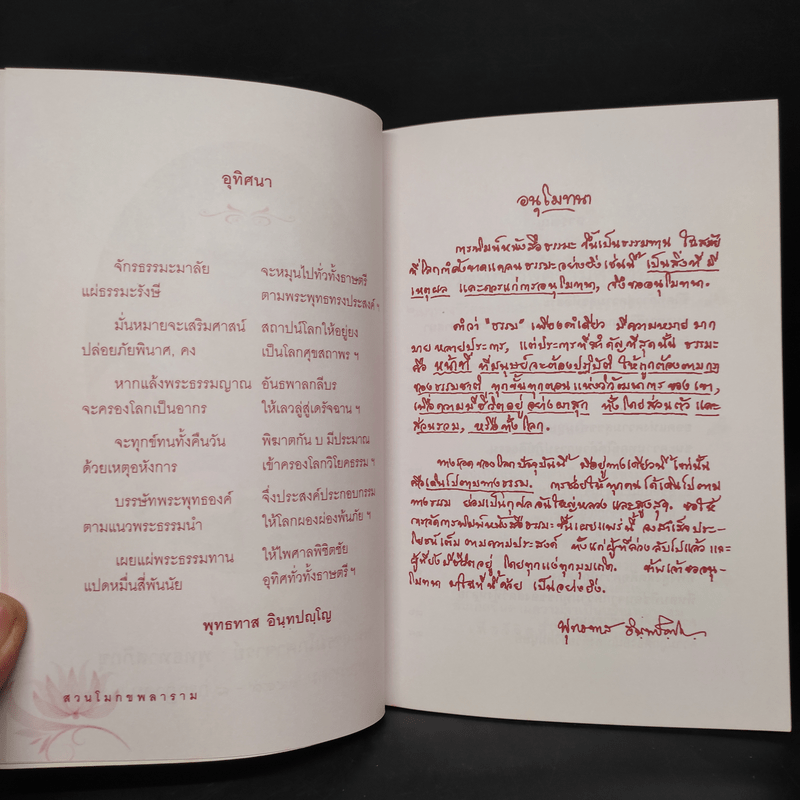 อุทิศนา
จักรธรรมะมาลัย จะหมุนไปทั่วทั้งธาษตรี
แผ่ธรรมะรังษี ตามพระพุทธทรงประสงค์ ฯ
มั่นหมายจะเสริมศาสน์ สถาปน์โลกให้อยู่ยง
ปล่อยภัยพินาศ, คง เป็นโลกศุขสถาพร ฯ
หากแล้งพระธรรมญาณ อันธพาลกลีบร
จะครองโลกเป็นอากร ให้เลวลู่สู่เดรัจฉาน ฯ
จะทุกข์ทนทั้งคืนวัน พิฆาตกัน บ มีประมาณ
ด้วยเหตุอหังการ เข้าครองโลกวิโยคธรรม ฯ
บรรษัทพระพุทธองค์ จึ่งประสงค์ประกอบกรรม
ตามแนวพระธรรมนำ ให้โลกผองผ่องพ้นภัย ฯ
เผยแผ่พระธรรมทาน ให้ไพศาลพิชิตชัย
แปดหมื่นสี่พันนัย อุทิศทั่วทั้งธาษตรี ฯ
พุทธทาส อินฺทปญฺโญ
สวนโมกขพลาราม
อนุโมทนา
การพิมพ์หนังสือธรรมะ ขึ้นเป็นธรรมทาน ในสมัย
ที่โลกกำลังขาดแคลนธรรมะอย่างยิ่งเช่นนี้ เป็นสิ่งที่มี
เหตุผล และควรแก่การอนุโมทนา, จึงขออนุโมทนา.
คำว่า "ธรรม" เพียงคำเดียว มีความหมาย มาก
มายหลายประการ, แต่ประการที่สำคัญที่สุดนั้น ธรรมะ
คือ หน้าที่ ที่มนุษย์จะต้องปฏิบัติ ให้ถูกต้องตามกฎ
ของธรรมชาติ ทุกขั้นทุกตอน แห่งวิวัฒนาการ ของเขา,
เพื่อความมีชีวิตอยู่ อย่างผาสุก ทั้งโดยส่วนตัว และ
ส่วนรวม, หรือทั้งโลก.
ทางรอด ของโลก ปัจจุบันนี้ มีอยู่ทางเดียวนี้ เท่านั้น
คือเดินไปตามทางธรรม. การช่วยให้ทุกคน ได้เดินไปตาม
ทางธรรม ย่อมเป็นกุศลอันใหญ่หลวง และสูงสุด. ขอให้
การจัดการพิมพ์หนังสือธรรมะ ขึ้นเผยแพร่นี้ จงสำเร็จประ-
โยชน์เต็ม ตามความประสงค์ ทั้งแก่ผู้ที่ล่วงลับไปแล้ว และ
ผู้ที่ยังมีชีวิตอยู่ โดยทุกแง่ทุกมุมเถิด. ข้าพเจ้าขออนุ-
โมทนา ในที่นี้ด้วย เป็นอย่างยิ่ง.
พุทธทาส อินฺทปญฺโญ